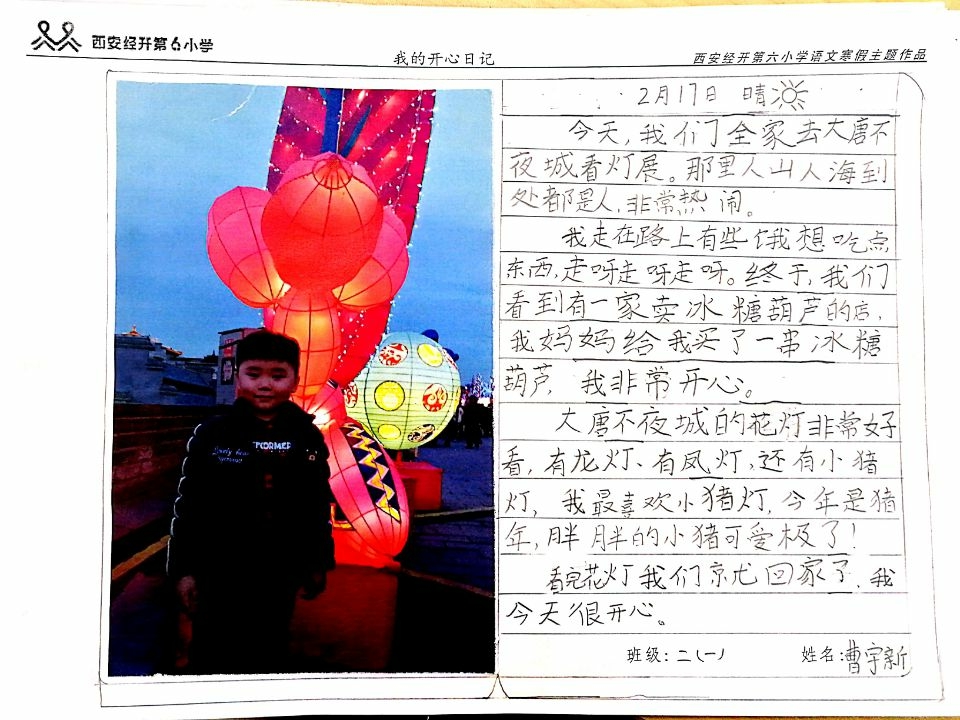 西安经开第6小学
我的开心日记
西安经开第六小学语文寒假主题作品
2月17日 晴
今天,我们全家去大唐不
夜城看灯展。那里人山人海到
处都是人,非常热闹。
我走在路上有些饿我想吃点
东西,走呀走呀走呀。终于,我们
看到有一家卖冰糖葫芦的店,
我妈妈给我买了一串冰糖
葫芦,我非常开心。
大唐不夜城的花灯非常好
看,有龙灯、有凤灯,还有小猪
灯,我最喜欢小猪灯,今年是猪
年,胖胖的小猪可爱极了!
看完花灯我们就回家了,我
今天很开心。
班级:二(一)
姓名:曹宇新